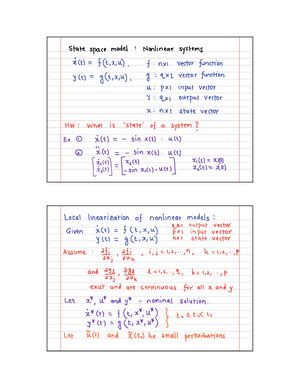 State space model : Nonlinear systems
ẋ(t) = f(t,x,u), f : n×1 vector function
y(t) = g(t,x,u), g : q×1 vector function
u : p×1 input vector
y : q×1 output vector
x : n×1 state vector
HW : What is 'state' of a system?
Ex ① ẋ(t) = - sin x(t) · u(t)
② ẍ(t) = - sin x(t) · u(t)
[ẋ₁(t) ẋ₂(t)] = [x₂(t) - sin x₁(t) · u(t)] x₁(t) = x(t) x₂(t) = ẋ(t)
Local linearization of nonlinear models :
Given ẋ(t) = f(t,x,u) q×1 output vector
y(t) = g(t,x,u) p×1 input vector
n×1 state vector
Assume : ∂fᵢ/∂xⱼ, ∂fᵢ/∂uₖ, i,j = 1,2,..,n, k = 1,2,..,p
and ∂gₗ/∂xⱼ, ∂gₗ/∂uₖ l = 1,2,..,q, k = 1,2,..,p
exist and are continuous for all x and y.
Let x*, u* and y* - nominal solution.
ẋ*(t) = f(t,x*,u*) } t₀ ≤ t ≤ t₁
y*(t) = g(t,x*,u*)
Let ũ(t) and x̃(t₀) be small perturbations